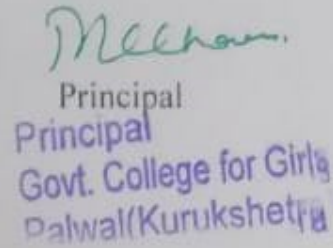 Principal
Principal
Govt. College for Girls
Palwal(Kurukshetra